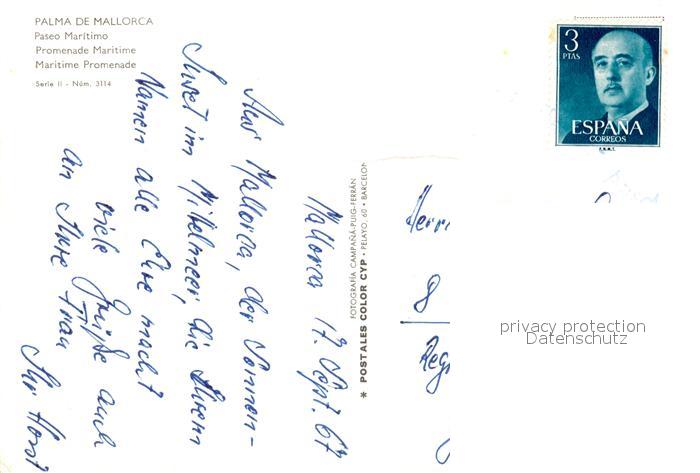 PALMA DE MALLORCA
Paseo Marítimo
Promenade Maritime
Maritime Promenade
Serie II - Núm. 3114
Mallorca 17. Sept. 67
Aus Mallorca, der Sonnen-
Insel im Mittelmeer, die Ihrem
Namen alle Ehre macht
viele Grüße auch
an Ihre Frau
Ihr Horst
FOTOGRAFÍA CAMPAÑÁ-PUIG-FERRÁN
* POSTALES COLOR CYP • PELAYO, 60 • BARCELON
3
PTAS
ESPAÑA
CORREOS
F.N.M.T.
Herr
8
Reg
privacy protection
Datenschutz